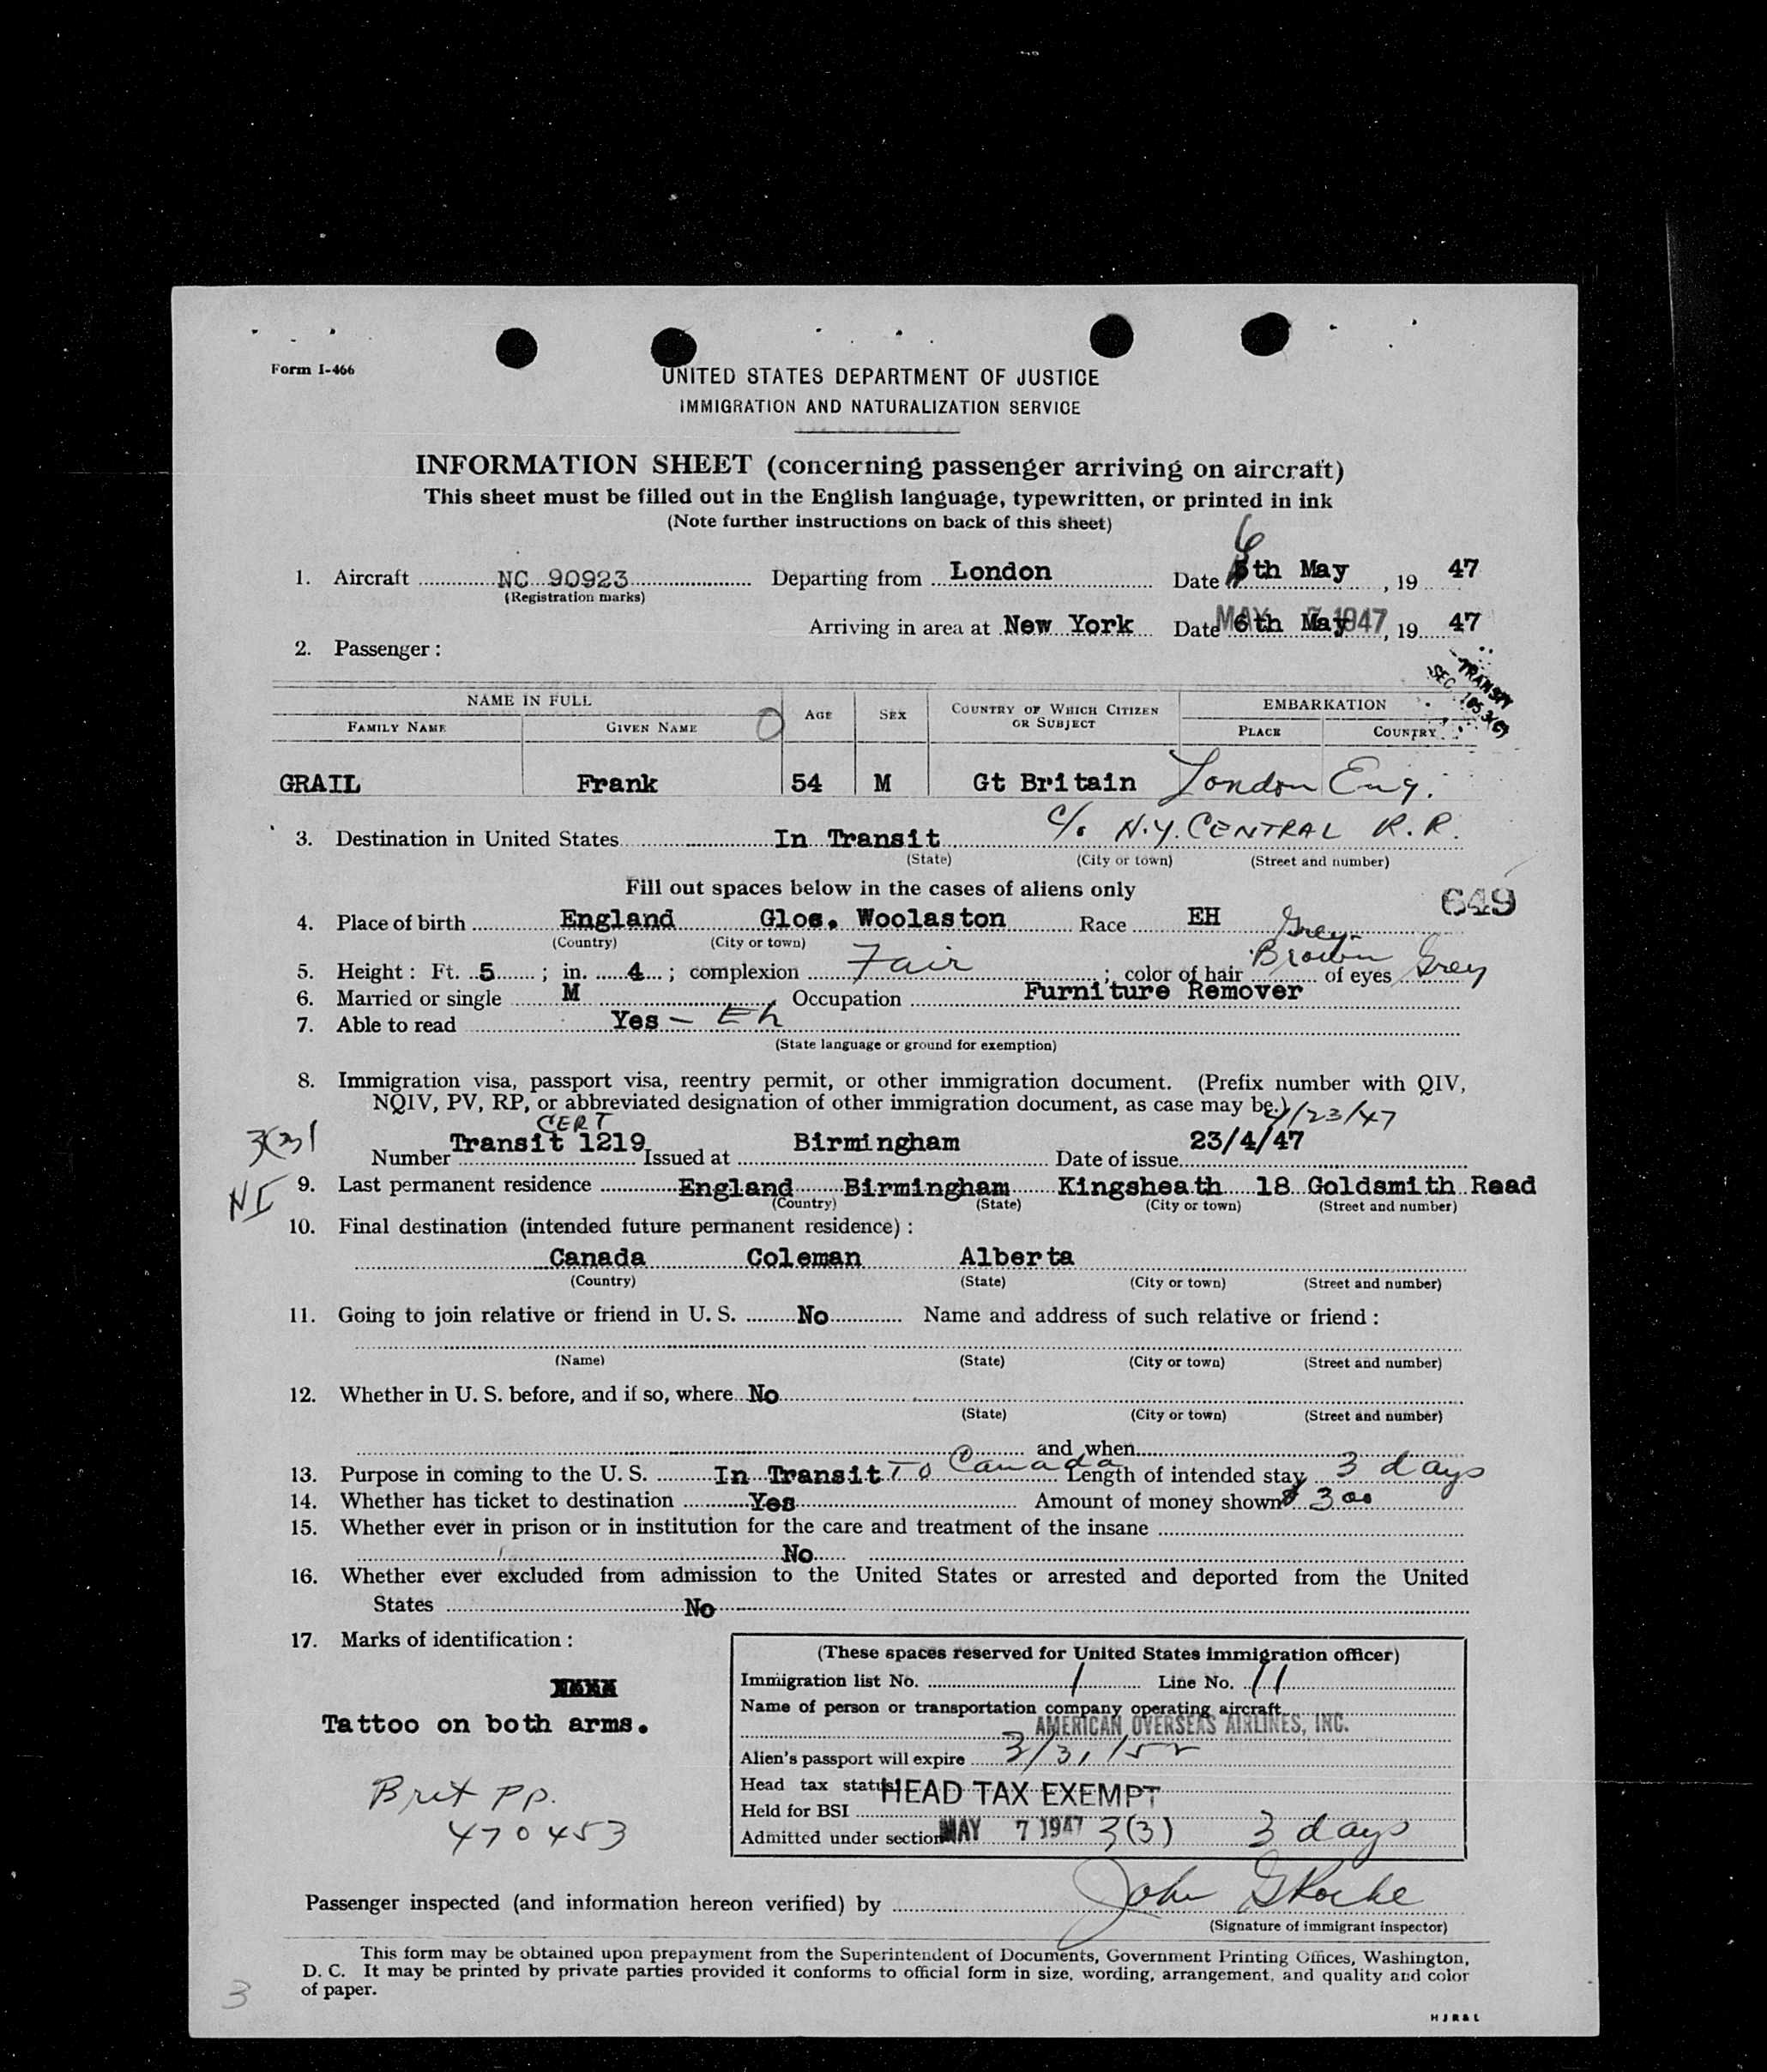 Form I-466
UNITED STATES DEPARTMENT OF JUSTICE
IMMIGRATION AND NATURALIZATION SERVICE
INFORMATION SHEET (concerning passenger arriving on aircraft)
This sheet must be filled out in the English language, typewritten, or printed in ink
(Note further instructions on back of this sheet)
1. Aircraft NC 90923 Departing from London Date 6th May, 19 47
(Registration marks)
Arriving in area at New York Date 6th May, 19 47
MAY 7 1947
2. Passenger :
TRANSIT
SEC
NAME IN FULL AGE SEX COUNTRY OF WHICH CITIZEN OR SUBJECT EMBARKATION
FAMILY NAME GIVEN NAME PLACE COUNTRY
GRAIL Frank 54 M Gt Britain London Eng.
c/o N.Y. CENTRAL R.R.
3. Destination in United States In Transit
(State) (City or town) (Street and number)
Fill out spaces below in the cases of aliens only
649
4. Place of birth England Glos. Woolaston Race EH
(Country) (City or town)
Grey
5. Height : Ft. 5 ; in. 4 ; complexion Fair ; color of hair Brown of eyes Grey
6. Married or single M Occupation Furniture Remover
7. Able to read Yes - Eh
(State language or ground for exemption)
8. Immigration visa, passport visa, reentry permit, or other immigration document. (Prefix number with QIV,
NQIV, PV, RP, or abbreviated designation of other immigration document, as case may be.)
CERT 4/23/47
3(3)
Number Transit 1219 Issued at Birmingham Date of issue 23/4/47
NI
9. Last permanent residence England Birmingham Kingsheath 18 Goldsmith Road
(Country) (State) (City or town) (Street and number)
10. Final destination (intended future permanent residence) :
Canada Coleman Alberta
(Country) (State) (City or town) (Street and number)
11. Going to join relative or friend in U. S. No Name and address of such relative or friend :
(Name) (State) (City or town) (Street and number)
12. Whether in U. S. before, and if so, where No
(State) (City or town) (Street and number)
and when
13. Purpose in coming to the U. S. In Transit To Canada Length of intended stay 3 days
14. Whether has ticket to destination Yes Amount of money shown $ 300
15. Whether ever in prison or in institution for the care and treatment of the insane
No
16. Whether ever excluded from admission to the United States or arrested and deported from the United
States No
17. Marks of identification :
Tattoo on both arms.
Brit pp.
470453
(These spaces reserved for United States immigration officer)
Immigration list No. 1 Line No. 11
Name of person or transportation company operating aircraft
AMERICAN OVERSEAS AIRLINES, INC.
Alien's passport will expire 3/31/52
Head tax status HEAD TAX EXEMPT
Held for BSI
Admitted under section MAY 7 1947 3(3) 3 days
Passenger inspected (and information hereon verified) by John G Roche
(Signature of immigrant inspector)
This form may be obtained upon prepayment from the Superintendent of Documents, Government Printing Offices, Washington,
D. C. It may be printed by private parties provided it conforms to official form in size, wording, arrangement, and quality and color
of paper.
3
H J R & L